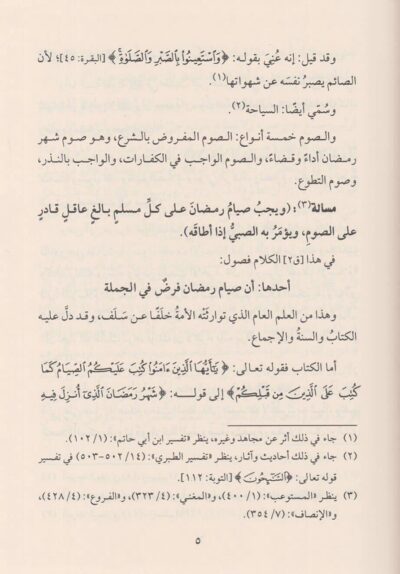 وقد قيل: إنه عُنِيَ بقوله: ﴿وَٱسْتَعِينُوا۟ بِٱلصَّبْرِ وَٱلصَّلَوٰةِ﴾ [البقرة: ٤٥]؛ لأن
الصائم يصبرُ نفسَه عن شهواتها(١).
وسُمّي أيضًا: السياحة(٢).
والصوم خمسة أنواع: الصوم المفروض بالشرع، وهو صوم شهر
رمضان أداءً وقضاءً، والصوم الواجب في الكفارات، والواجب بالنذر،
وصوم التطوع.
مسالة(٣): (ويجبُ صيامُ رمضانَ على كلِّ مسلمٍ بالغٍ عاقلٍ قادرٍ
على الصومِ، ويؤمَرُ به الصبيُّ إذا أطاقَه).
في هذا [ق٢] الكلام فصول:
أحدها: أن صيام رمضان فرضٌ في الجملة
وهذا من العلم العام الذي توارثَتْه الأمةُ خلَفًا عن سَلَف، وقد دلَّ عليه
الكتابُ والسنةُ والإجماع.
أما الكتاب فقوله تعالى: ﴿يَٰٓأَيُّهَا ٱلَّذِينَ ءَامَنُوا۟ كُتِبَ عَلَيْكُمُ ٱلصِّيَامُ كَمَا
كُتِبَ عَلَى ٱلَّذِينَ مِن قَبْلِكُمْ﴾ إلى قوله: ﴿شَهْرُ رَمَضَانَ ٱلَّذِىٓ أُنزِلَ فِيهِ
(١) جاء في ذلك أثر عن مجاهد وغيره، ينظر «تفسير ابن أبي حاتم»: (١/ ١٠٢).
(٢) جاء في ذلك أحاديث وآثار، ينظر «تفسير الطبري»: (١٤/ ٥٠٢-٥٠٣) في تفسير
قوله تعالى: ﴿ٱلسَّٰٓئِحُونَ﴾ [التوبة: ١١٢].
(٣) ينظر «المستوعب»: (١/ ٤٠٠)، و«المغني»: (٤/ ٣٢٣)، و«الفروع»: (٤/ ٤٢٨)،
و«الإنصاف»: (٧/ ٣٥٤).
٥